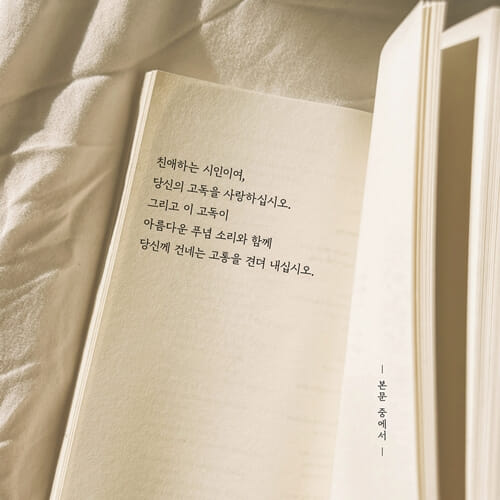 친애하는 시인이여,
당신의 고독을 사랑하십시오.
그리고 이 고독이
아름다운 푸념 소리와 함께
당신께 건네는 고통을 견뎌 내십시오.
— 본문 중에서 —